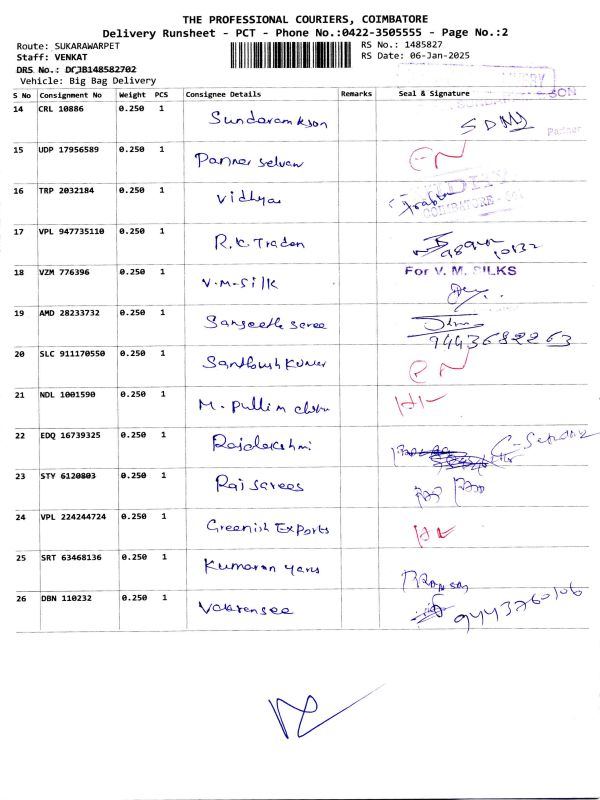 THE PROFESSIONAL COURIERS, COIMBATORE
Delivery Runsheet - PCT - Phone No.:0422-3505555 - Page No.:2
Route: SUKARAWARPET
RS No.: 1485827
Staff: VENKAT
RS Date: 06-Jan-2025
DRS No.: DCJB148582702
Vehicle: Big Bag Delivery
S No Consignment No Weight PCS Consignee Details Remarks Seal & Signature
SON
14 CRL 10886 0.250 1 Sundaram &son
Partner
15 UDP 17956589 0.250 1 Panner selvam
16 TRP 2032184 0.250 1 Vidhya
COIMBATORE
17 VPL 947735110 0.250 1 R.K. Traden
18 VZM 776396 0.250 1 V.M-Silk For V. M. SILKS
19 AMD 28233732 0.250 1 Sangeetha saree
9443682263
20 SLC 911170550 0.250 1 Santhosh Kumar
21 NDL 1001590 0.250 1 M. Pullim
22 EDQ 16739325 0.250 1 Rajalakshmi
23 STY 6120803 0.250 1 Raj sarees
24 VPL 224244724 0.250 1 Greenish Exports
25 SRT 63468136 0.250 1 Kumaran yans
26 DBN 110232 0.250 1 9443760106